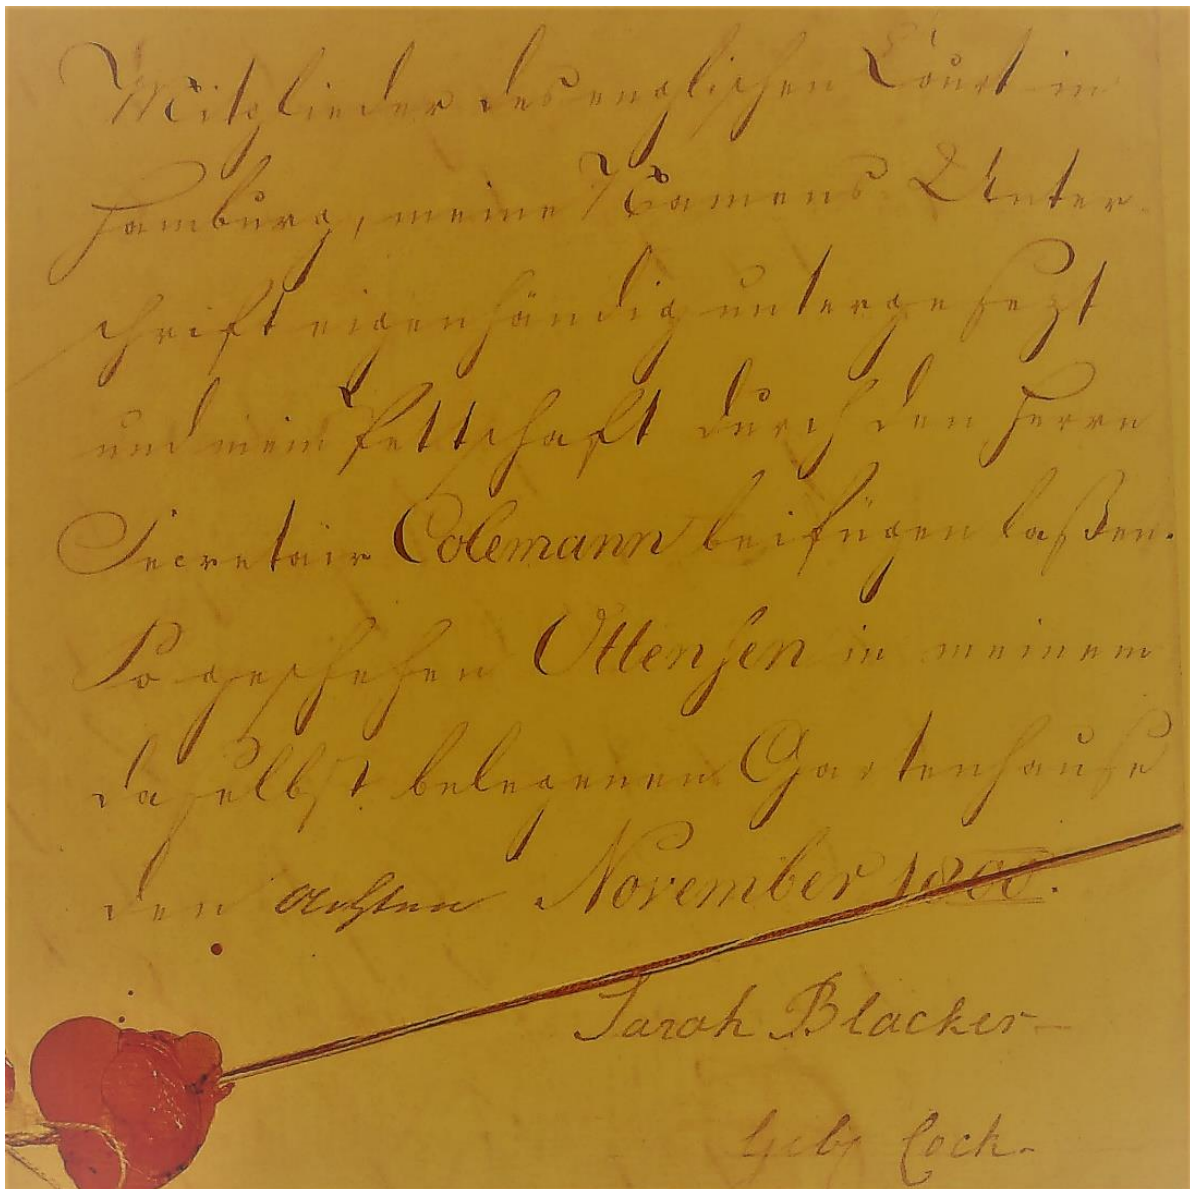 Mitglieder des englischen Court in
Hamburg, meine Namens Unter
schrift eigenhändig untergesezt
und mein Pettschaft durch den Herrn
Secretair Colemann beifügen laßen.
So geschehen Ottensen in meinem
daselbst belegenen Gartenhause
den achten November 1800.
Sarah Blacker
Geb. Cock.